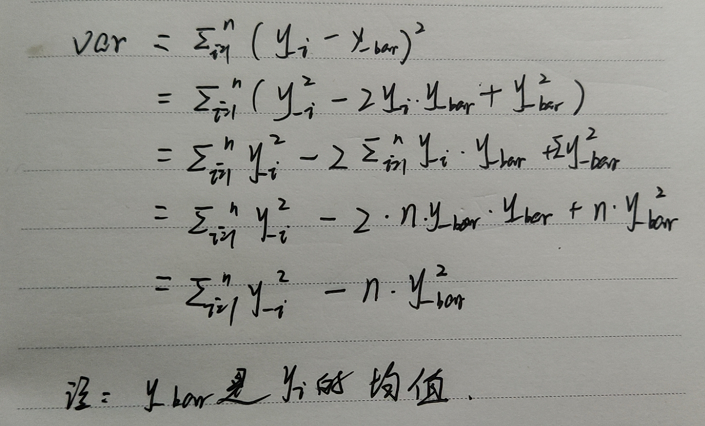 var = Σ_{i=1}^n (y_i - y_bar)^2
= Σ_{i=1}^n (y_i^2 - 2y_i · y_bar + y_bar^2)
= Σ_{i=1}^n y_i^2 - 2 Σ_{i=1}^n y_i · y_bar + Σy_bar^2
= Σ_{i=1}^n y_i^2 - 2 · n · y_bar · y_bar + n · y_bar^2
= Σ_{i=1}^n y_i^2 - n · y_bar^2
注: y_bar 是 y_i 的 均值.